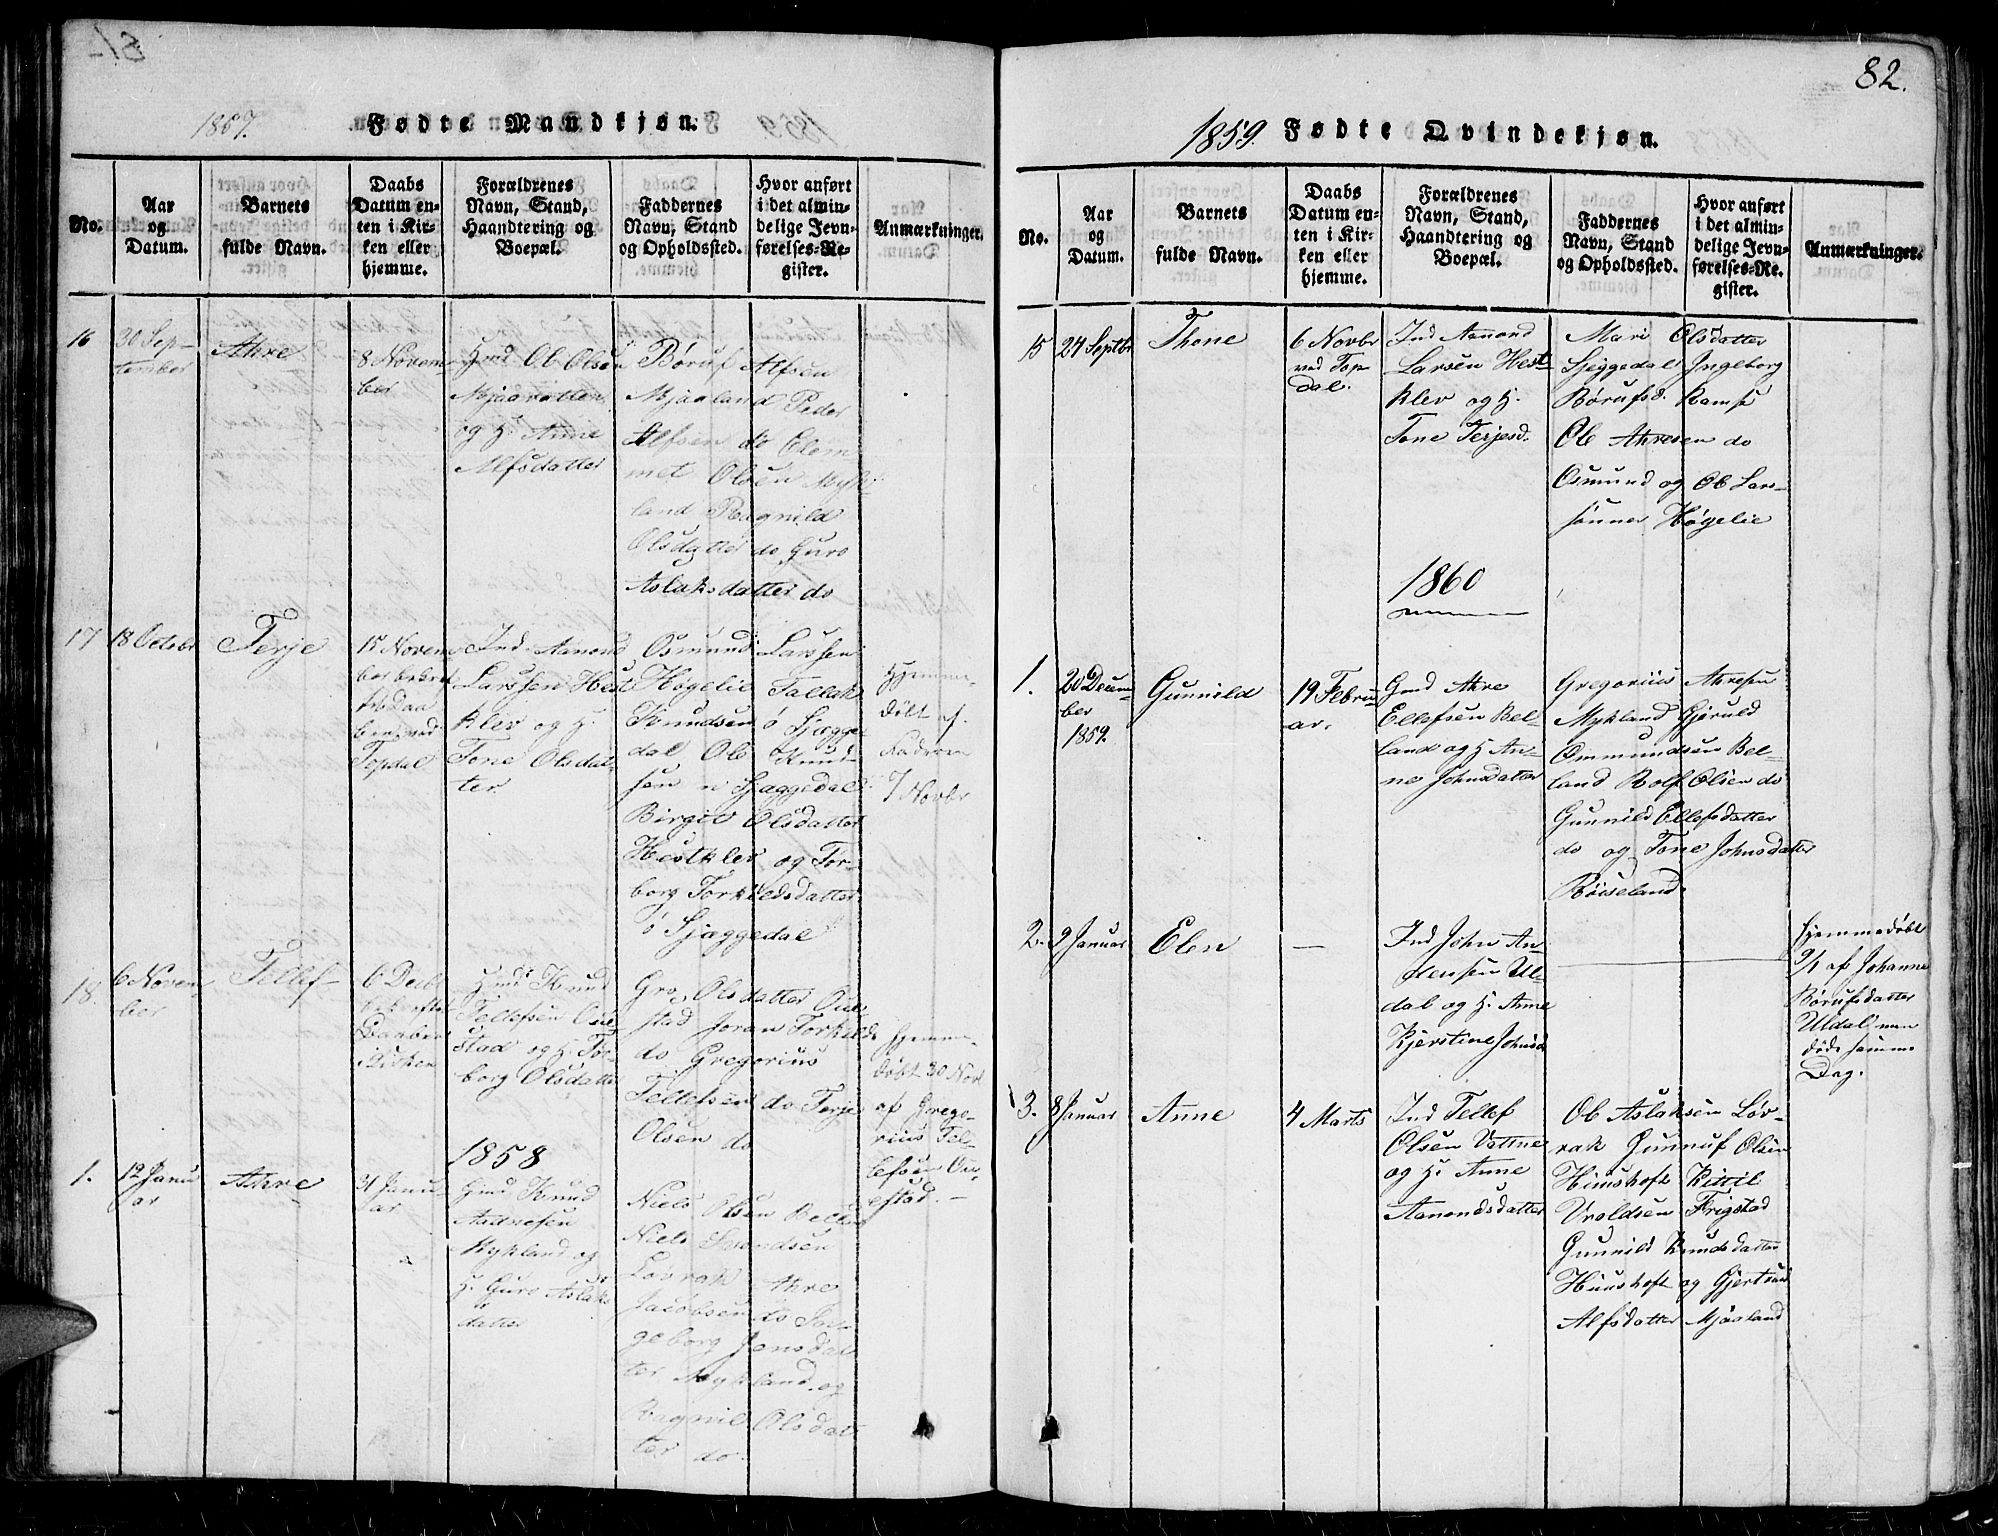 1857. Fødte Mandkjøn.
No.
Aar
og
Datum.
Barnets
fulde Navn.
Daabs
Datum en-
ten i Kir-
ken eller
hjemme.
Forældrenes
Navn, Stand,
Haandtering og
Boepæl.
Faddernes
Navn, Stand
og Opholdssted.
Hvor anført
i det almin-
delige Jevn-
førelses-Re-
gister.
Anmærkninger.
16
30 Sep-
tember
Ahre
8 Novem
ber
Gmd Ob Olsen
Mjaavatten
og H. Anne
Alfsdatter
Børuf Alfsen
Mjaaland Peder
Alfsen do Clem
met Olsen Myk-
land Ragnild
Olsdatter do Guro
Aslaksdatter do
17
18 Octobr
Terje
15 Novem
ber bekræf
tet Daa
ben ved
Topdal
Ind. Aanond
Larssen Hest
klev og H.
Tone Olsdat-
ter
Osmund Larssen
Høgelie Tallak
Knudsen ö Sjægge
dal Ob Knud-
sen n Sjæggedal
Birgit Olsdatter
Hestklev og Tor-
borg Torkildsdatter
ö Sjæggedal
Hjemme
døbt af
Faderen
7 Novbr
18.
6 Novem
ber
Tellef
6 Decbr
bekræftet
Daaben
i Kirken
Gmd Knud
Tellefsen Oue
stad og H. Tor-
borg Olsdatter
Gro Olsdatter Oue
stad Joran Torkilds
do Gregorius
Tellefsen do Terje
Olsen do
Hjemme
døbt 30 Nov
af Grego-
rius Tel-
lefsen Ou-
estad.
1858
1.
12 Janu
ar
Ahre
31 Janu-
ar
Gmd Knud
Aadnesen
Mykland og
H. Guro Aslaks
datter
Niels Olsen Belland
Niels Svendsen
Løvrak Ahre
Jacobsen do In-
geborg Jensdat
ter Mykland og
Ragnil Olsdat
ter do.
82.
1859. Fødte Qvindekjøn.
No.
Aar
og
Datum.
Barnets
fulde Navn.
Daabs
Datum en-
ten i Kir-
ken eller
hjemme.
Forældrenes
Navn, Stand,
Haandtering og
Boepæl.
Faddernes
Navn, Stand
og Opholdssted.
Hvor anført
i det almin-
delige Jevn-
førelses-Re-
gister.
Anmærkninger.
15
24 Septbr
Thone
6 Novbr
ved Top
dal.
Ind Aanond
Larsen Hest
klev og H.
Tone Terjesd.
Mari Olsdatter
Sjeggedal Ingeborg
Børufsd. Ramse
Ob Ahresen do
Osmund og Ob Lars-
sønner Høgelie
1860
1.
20 Decem
ber
1859.
Gunnild
19 Febru
ar.
Gmd Ahre
Ellefsen Bel-
land og H An-
ne Johnsdatter
Gregorius Ahresen
Mykland Gjeruld
Ommundsen Bel-
land Rolf Olsen do
Gunnild Ellefsdatter
do og Tone Johnsdatter
Røiseland.
2.
9 Januar
Elen
—
Ind John An-
dersen Ul-
dal og H. Anne
Kjerstine Johnsd
Hjemmedøbt
9/1 af Johanne
Børufsdatter
Uldal, men
døde samme
Dag.
3.
8 Januar
Anne
4 Marts
Ind Tellef
Olsen Vatne
og H. Anne
Aanondsdatter
Ob Aslaksen Løv-
rak Gunnuf Olsen
Hunshoft Kittil
Vroldsen Frigstad
Gunnild Knudsdatter
Hunshoft og Gjertrud
Alfsdatter Mjaaland